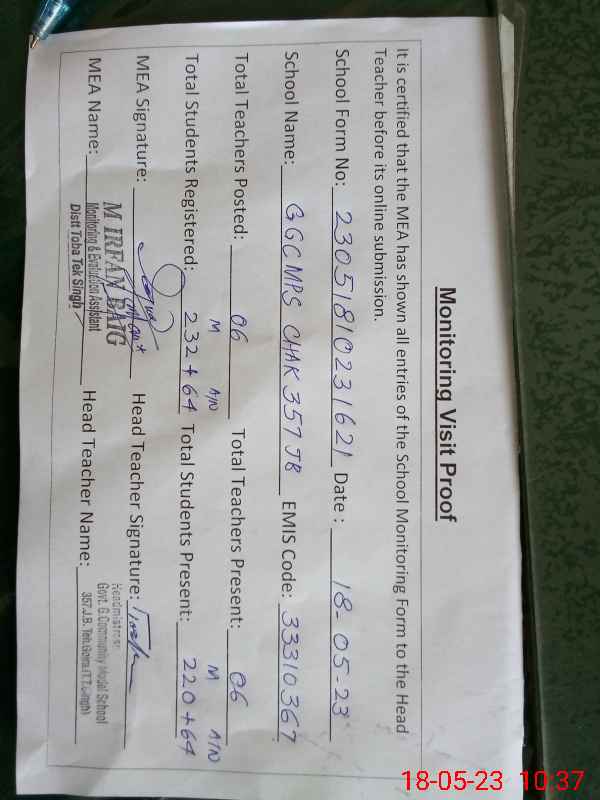 Monitoring Visit Proof
It is certified that the MEA has shown all entries of the School Monitoring Form to the Head
Teacher before its online submission.
School Form No: 23051810231621 Date : 18-05-23
School Name: GGCMPS CHAK 357 JB EMIS Code: 33310367
Total Teachers Posted: 06 Total Teachers Present: 06
M A/N M A/N
Total Students Registered: 232+64 Total Students Present: 220+64
MEA Signature: Head Teacher Signature:
MEA Name: M IRFAN BAIG Head Teacher Name:
Monitoring & Evaluation Assistant
Distt Toba Tek Singh
Headmistress
Govt. G.Community Model School
357.J.B. Teh.Gojra.(T.T.Singh)
18-05-23 10:37